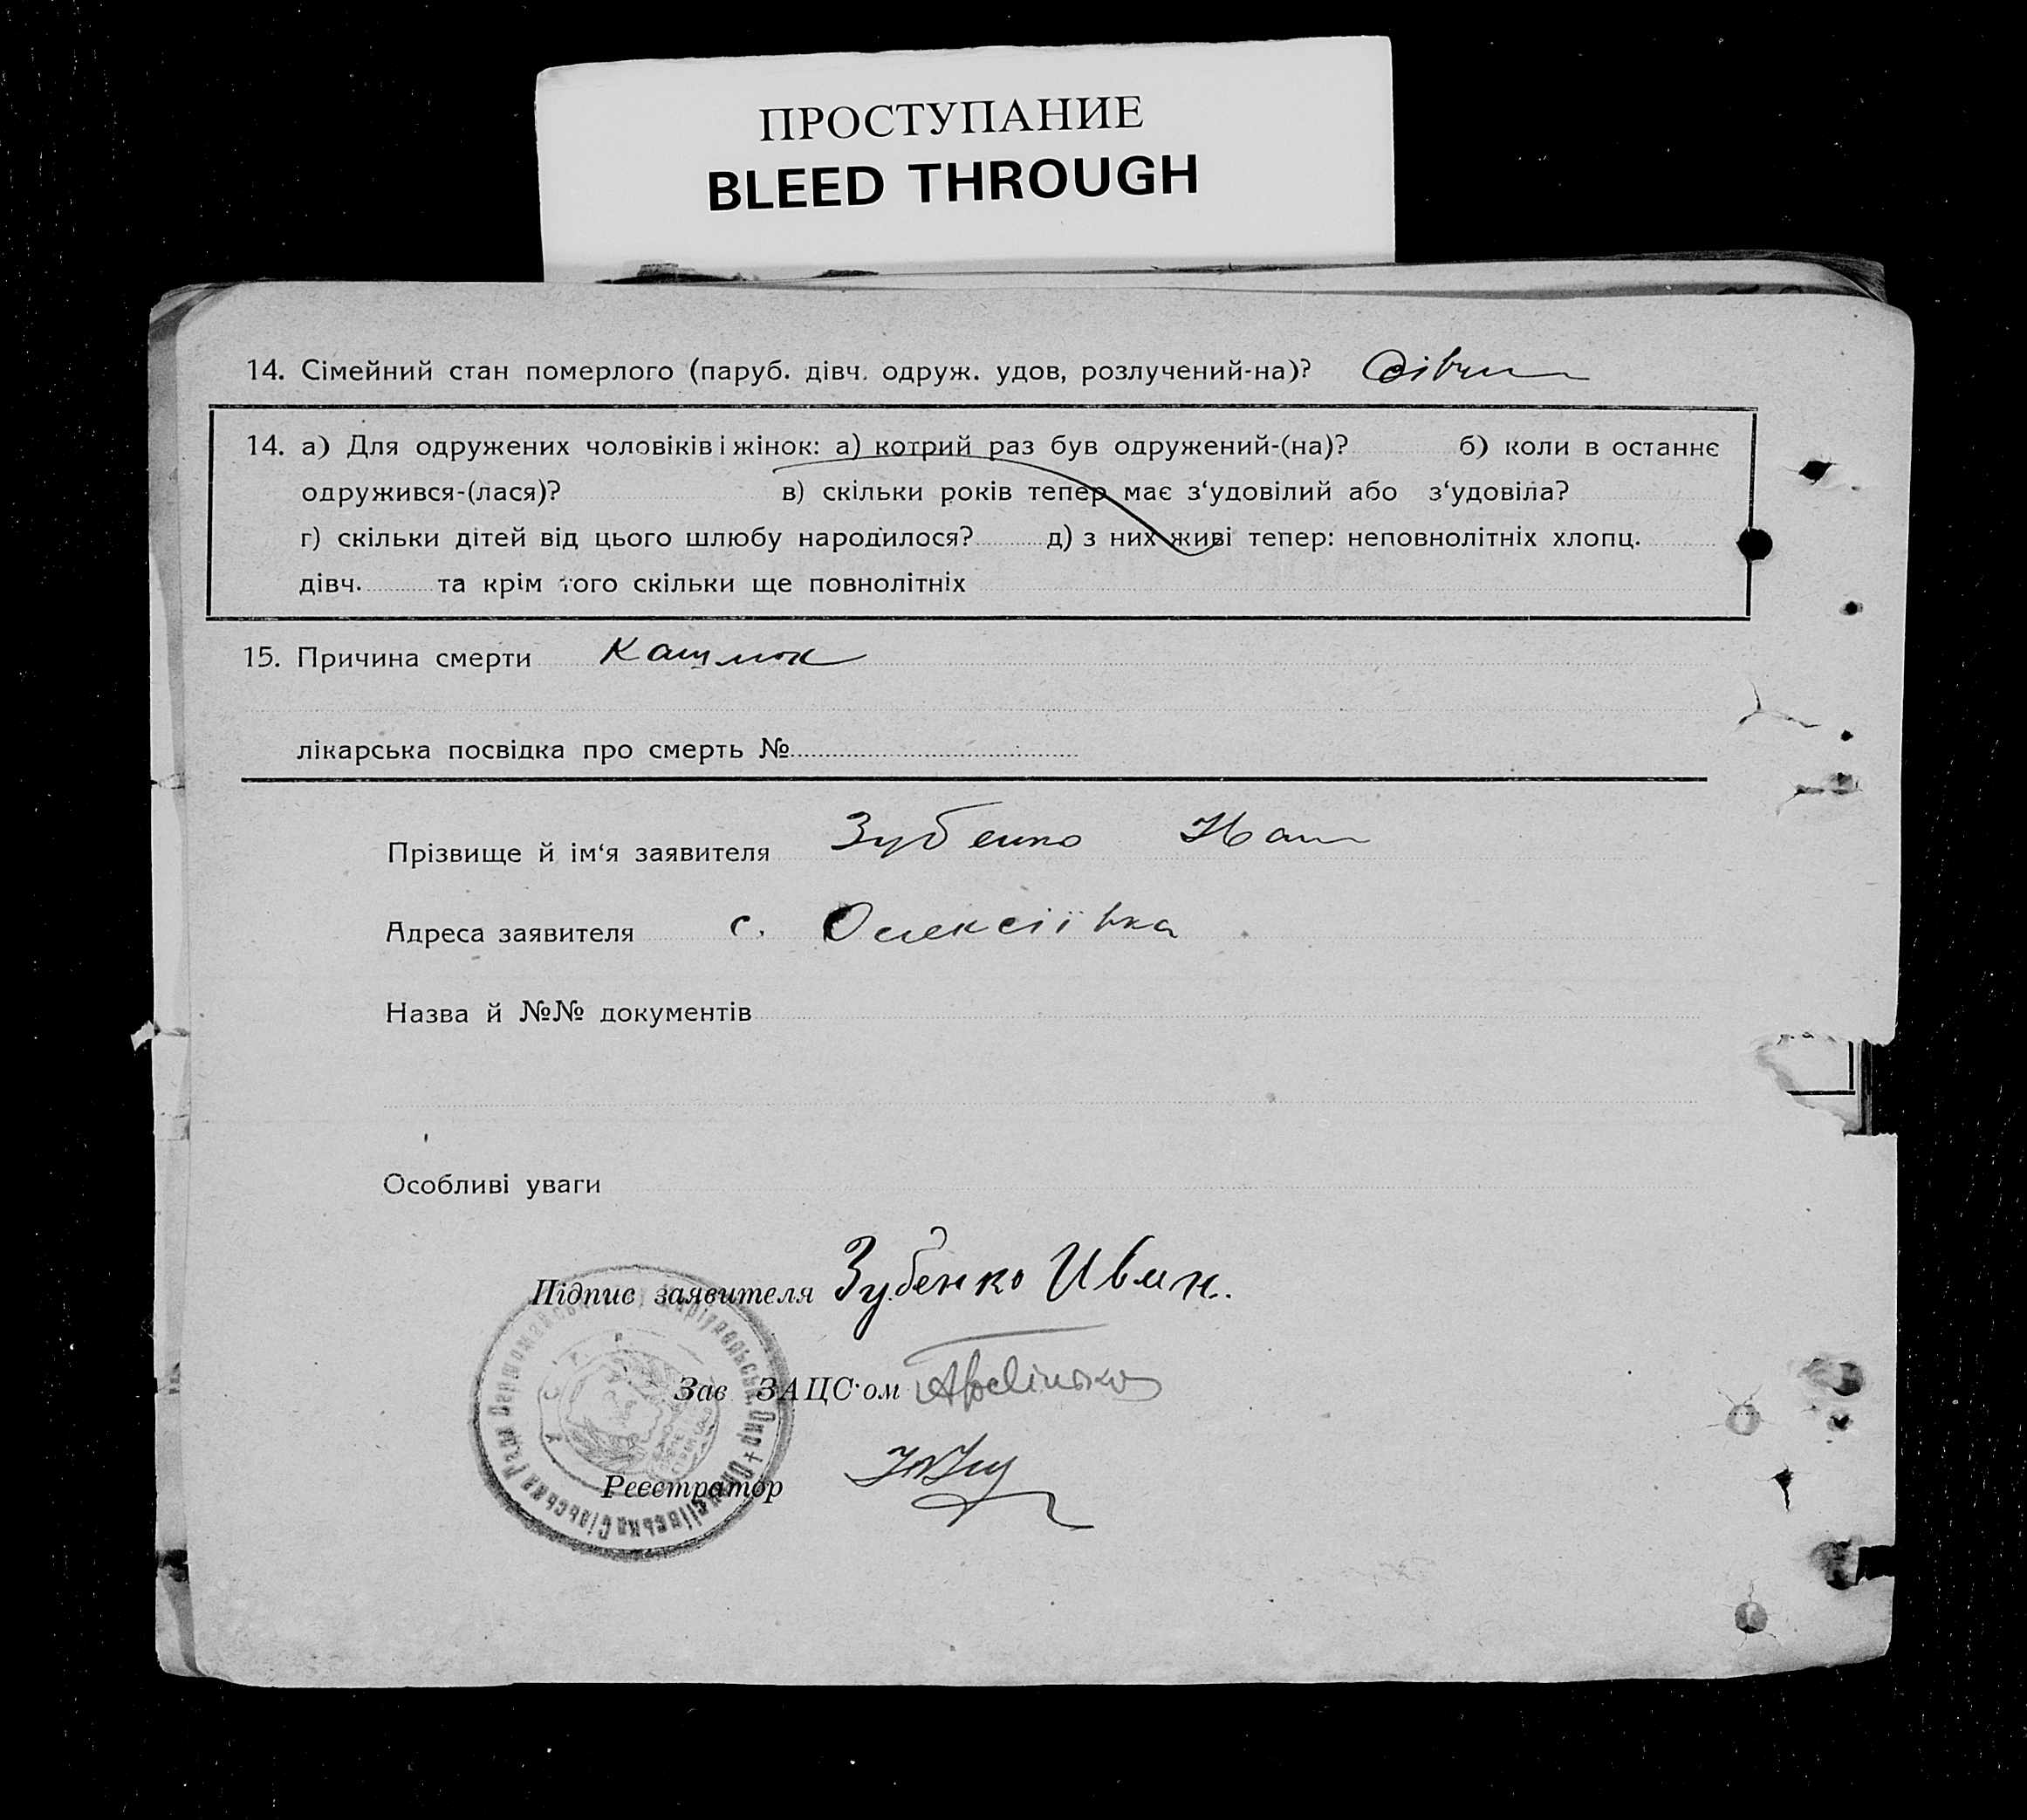 ПРОСТУПАНИЕ
BLEED THROUGH
14. Сімейний стан померлого (паруб. дівч. одруж. удов, розлучений-на)?
14. а) Для одружених чоловіків і жінок: а) котрий раз був одружений-(на)? б) коли в останнє
одружився-(лася)? в) скільки років тепер має з‘удовілий або з‘удовіла?
г) скільки дітей від цього шлюбу народилося? д) з них живі тепер: неповнолітніх хлопц.
дівч. та крім того скільки ще повнолітніх
15. Причина смерти Кашлюк
лікарська посвідка про смерть №
Прізвище й ім‘я заявителя Зубенко Иван
Адреса заявителя с. Олексіївка
Назва й №№ документів
Особливі уваги
Підпис заявителя Зубенко Иван.
Зав ЗАЦС·ом
Реєстратор